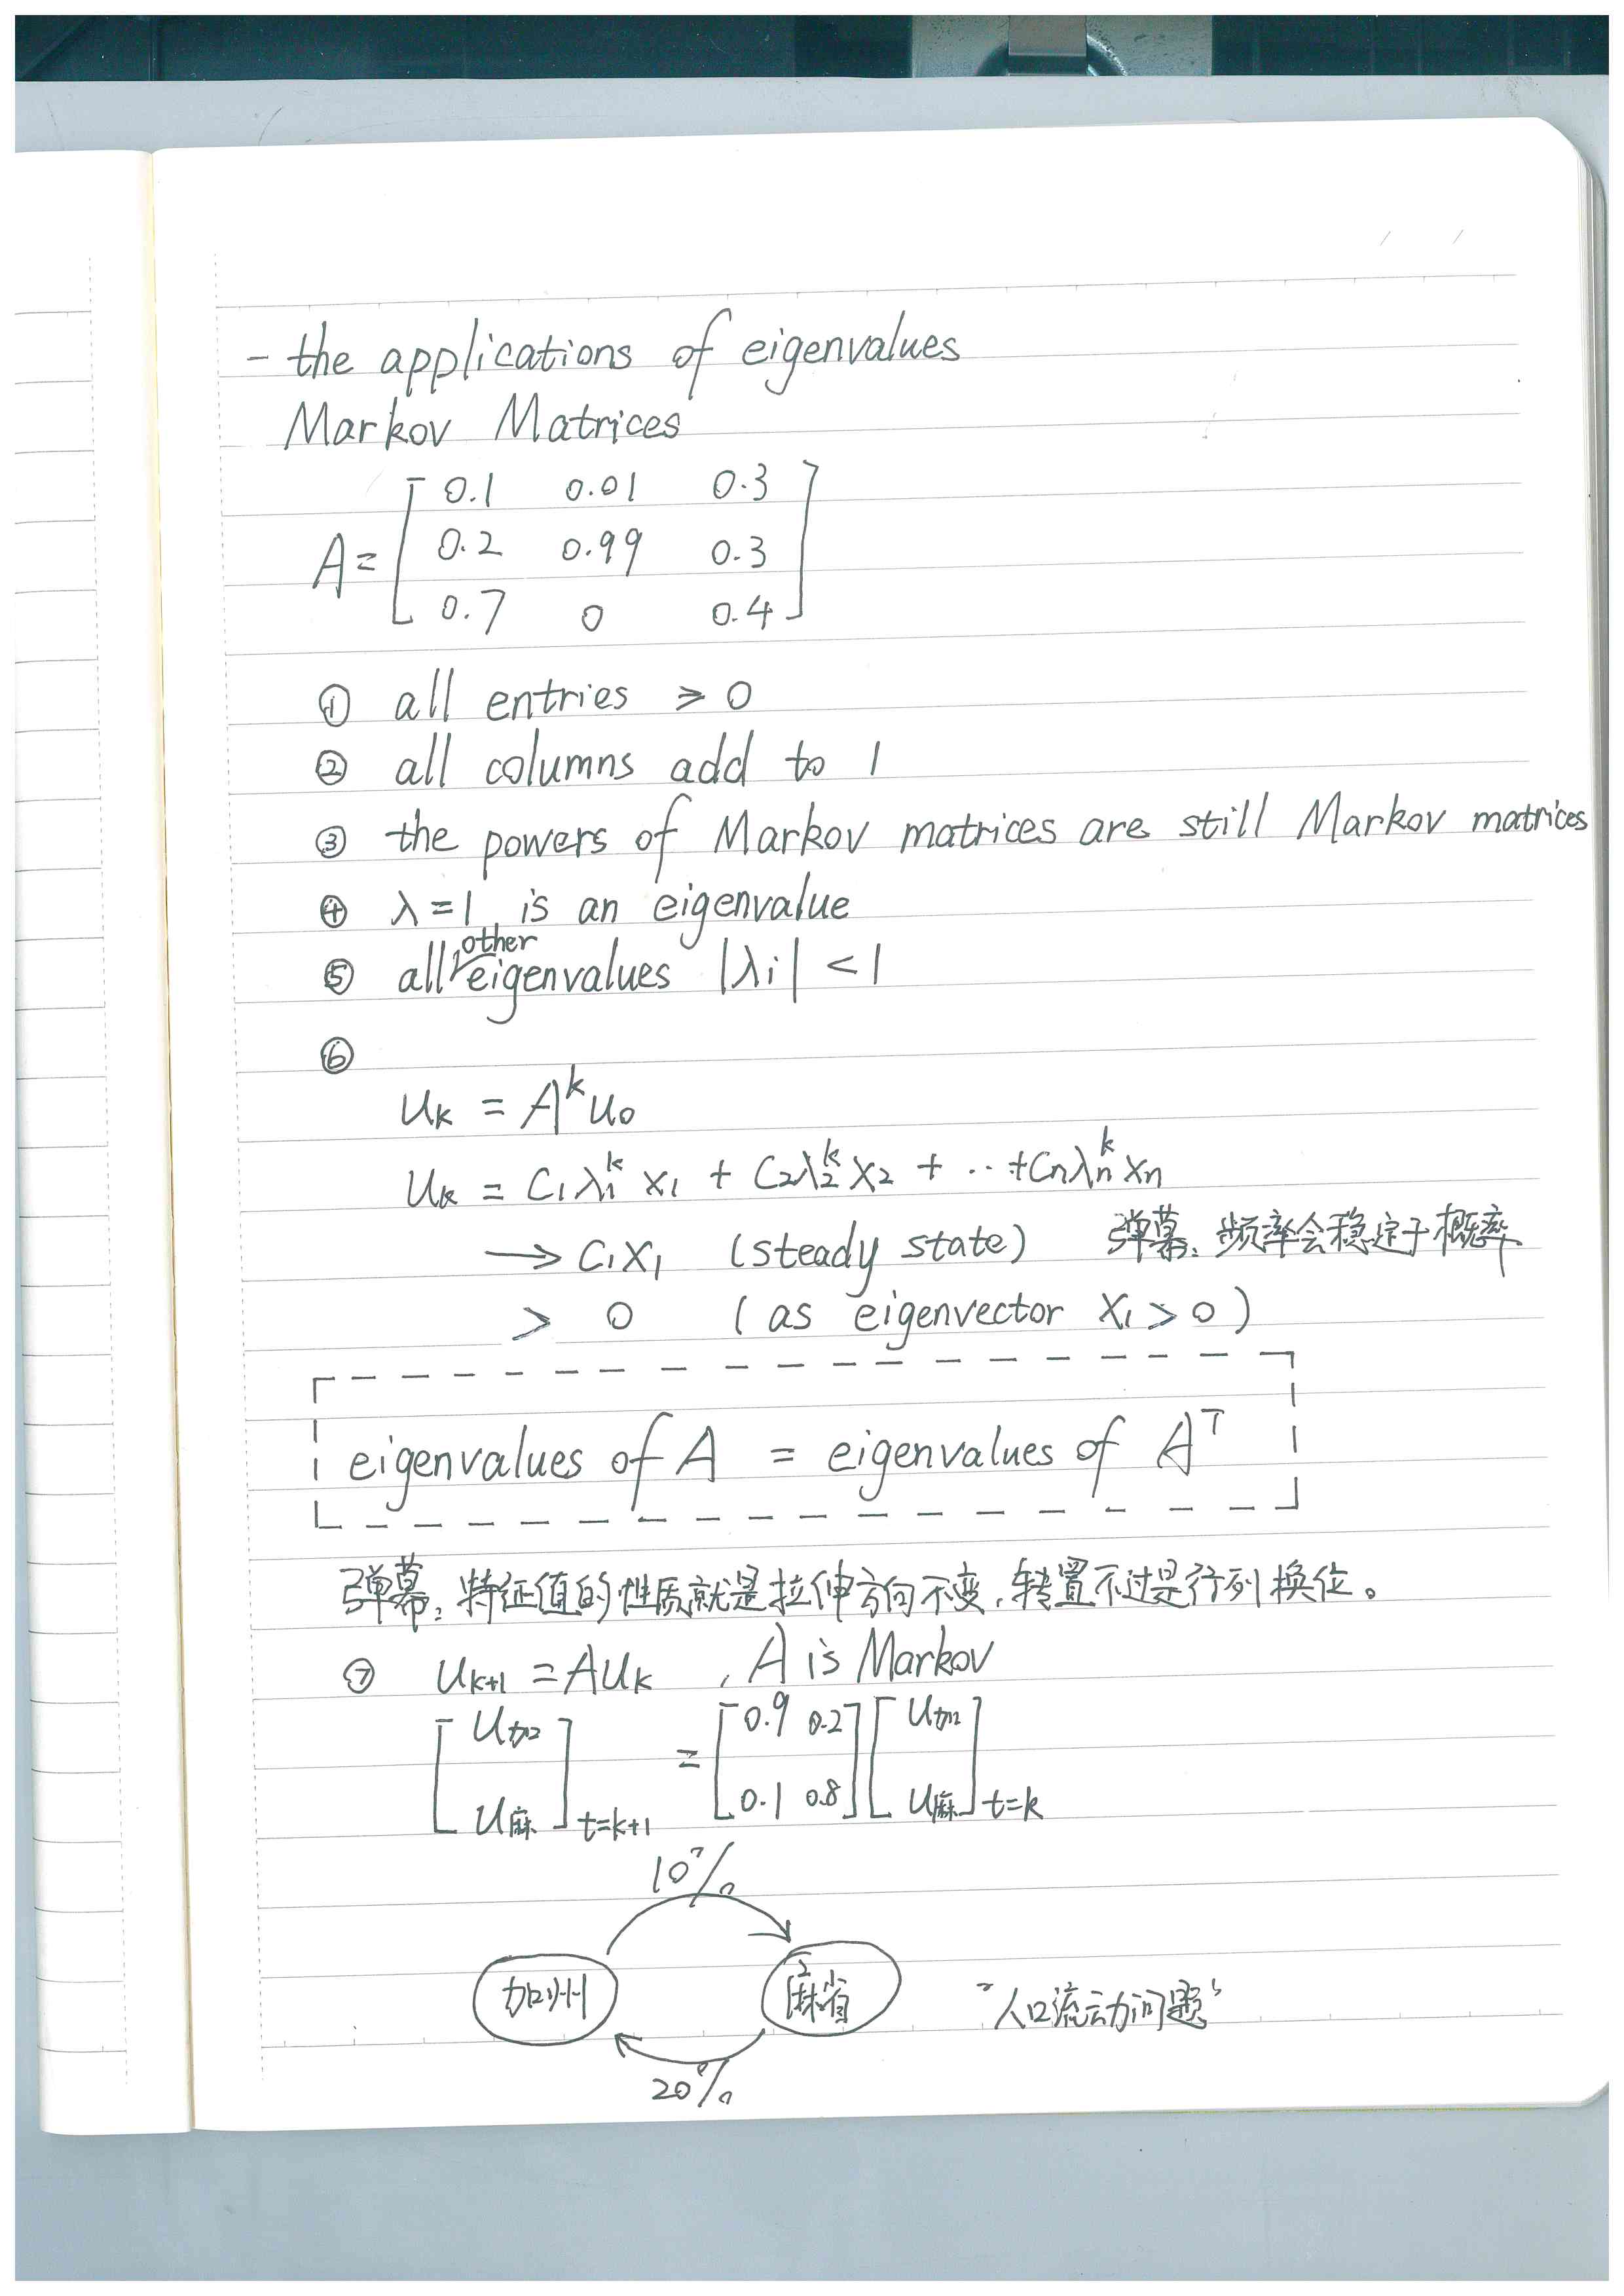 - the applications of eigenvalues
Markov Matrices
A = [ 0.1 0.01 0.3
0.2 0.99 0.3
0.7 0 0.4 ]
① all entries ⩾ 0
② all columns add to 1
③ the powers of Markov matrices are still Markov matrices
④ λ=1 is an eigenvalue
⑤ all other eigenvalues |λi| < 1
⑥
u_k = A^k u_0
u_k = C_1 λ_1^k x_1 + C_2 λ_2^k x_2 + ·· + C_n λ_n^k x_n
→ C_1 x_1 (steady state) 弹幕: 频率会稳定于概率
> 0 (as eigenvector x_1 > 0)
eigenvalues of A = eigenvalues of A^T
弹幕: 特征值的性质就是拉伸方向不变, 转置不过是行列换位。
⑦ u_{k+1} = A u_k , A is Markov
[ u加 u麻 ] t=k+1 = [ 0.9 0.2 0.1 0.8 ] [ u加 u麻 ] t=k
10%
加州 麻省 "人口流动问题"
20%